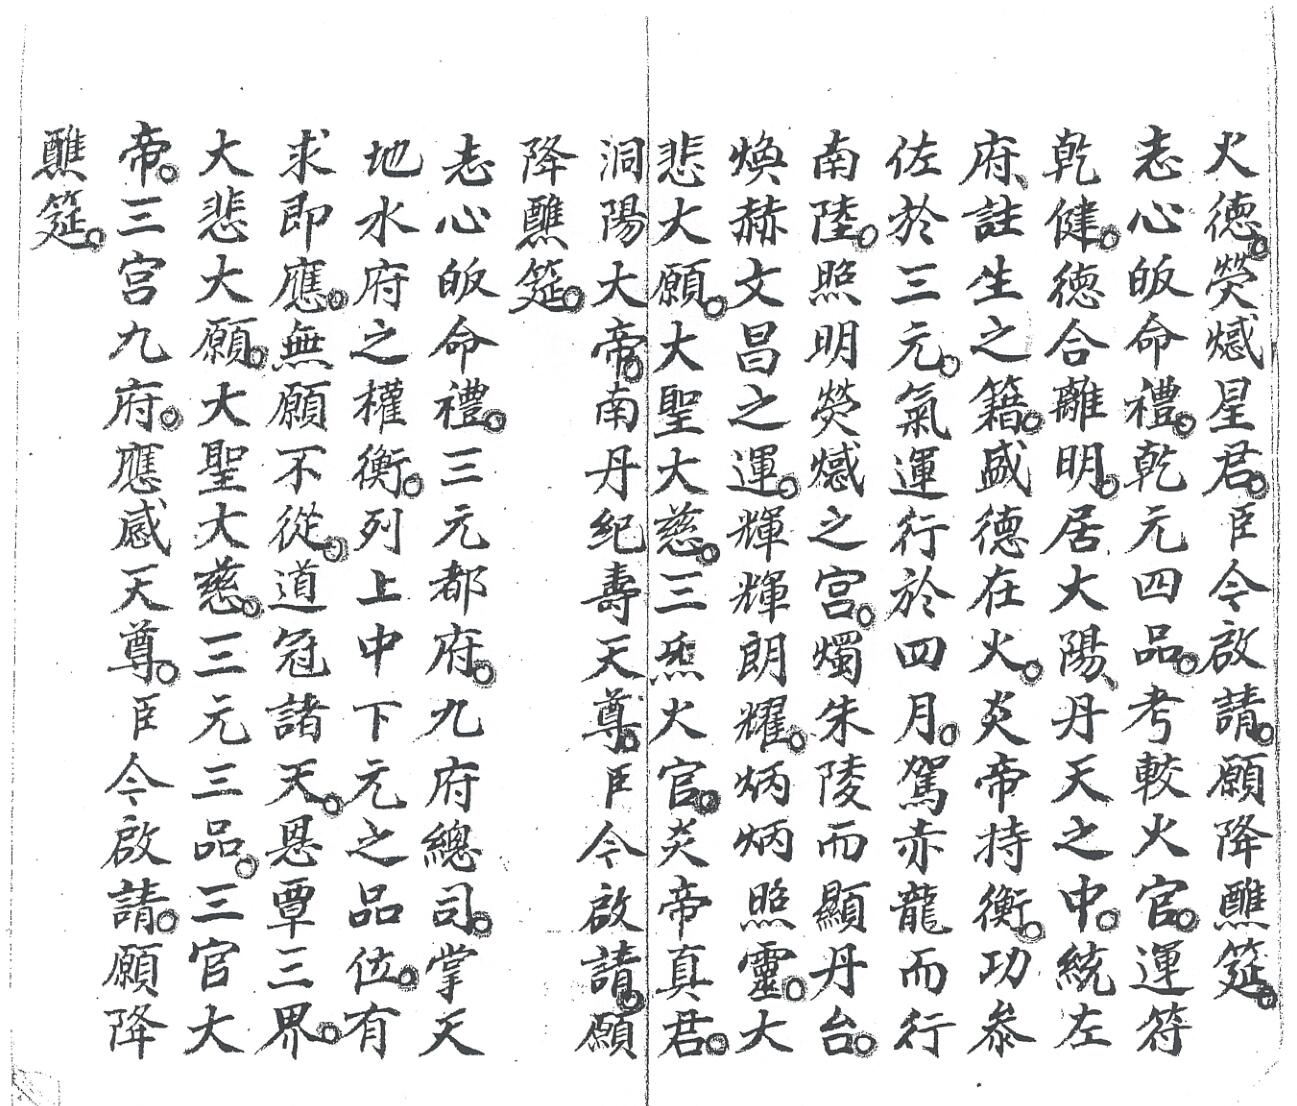 火德。熒㷰星君。臣今啟請。願降醮筵。
志心皈命禮。乾元四品。考較火官。運符
乾健。德合離明。居太陽、丹天之中。統左
府、註生之籍。盛德在火。炎帝持衡。功參
佐於三元。氣運行於四月。駕赤龍而行
南陸。照明熒㷰之宮。燭朱陵而顯丹台。
煥赫文昌之運。輝輝朗耀。炳炳照靈。大
悲大願。大聖大慈。三炁火官。炎帝真君。
洞陽大帝。南丹紀壽天尊。臣今啟請。願
降醮筵。
志心皈命禮。三元都府。九府總司。掌天
地水府之權衡。列上中下元之品位。有
求即應。無願不從。道冠諸天。恩覃三界。
大悲大願。大聖大慈。三元三品。三官大
帝。三宮九府。應感天尊。臣今啟請。願降
醮筵。